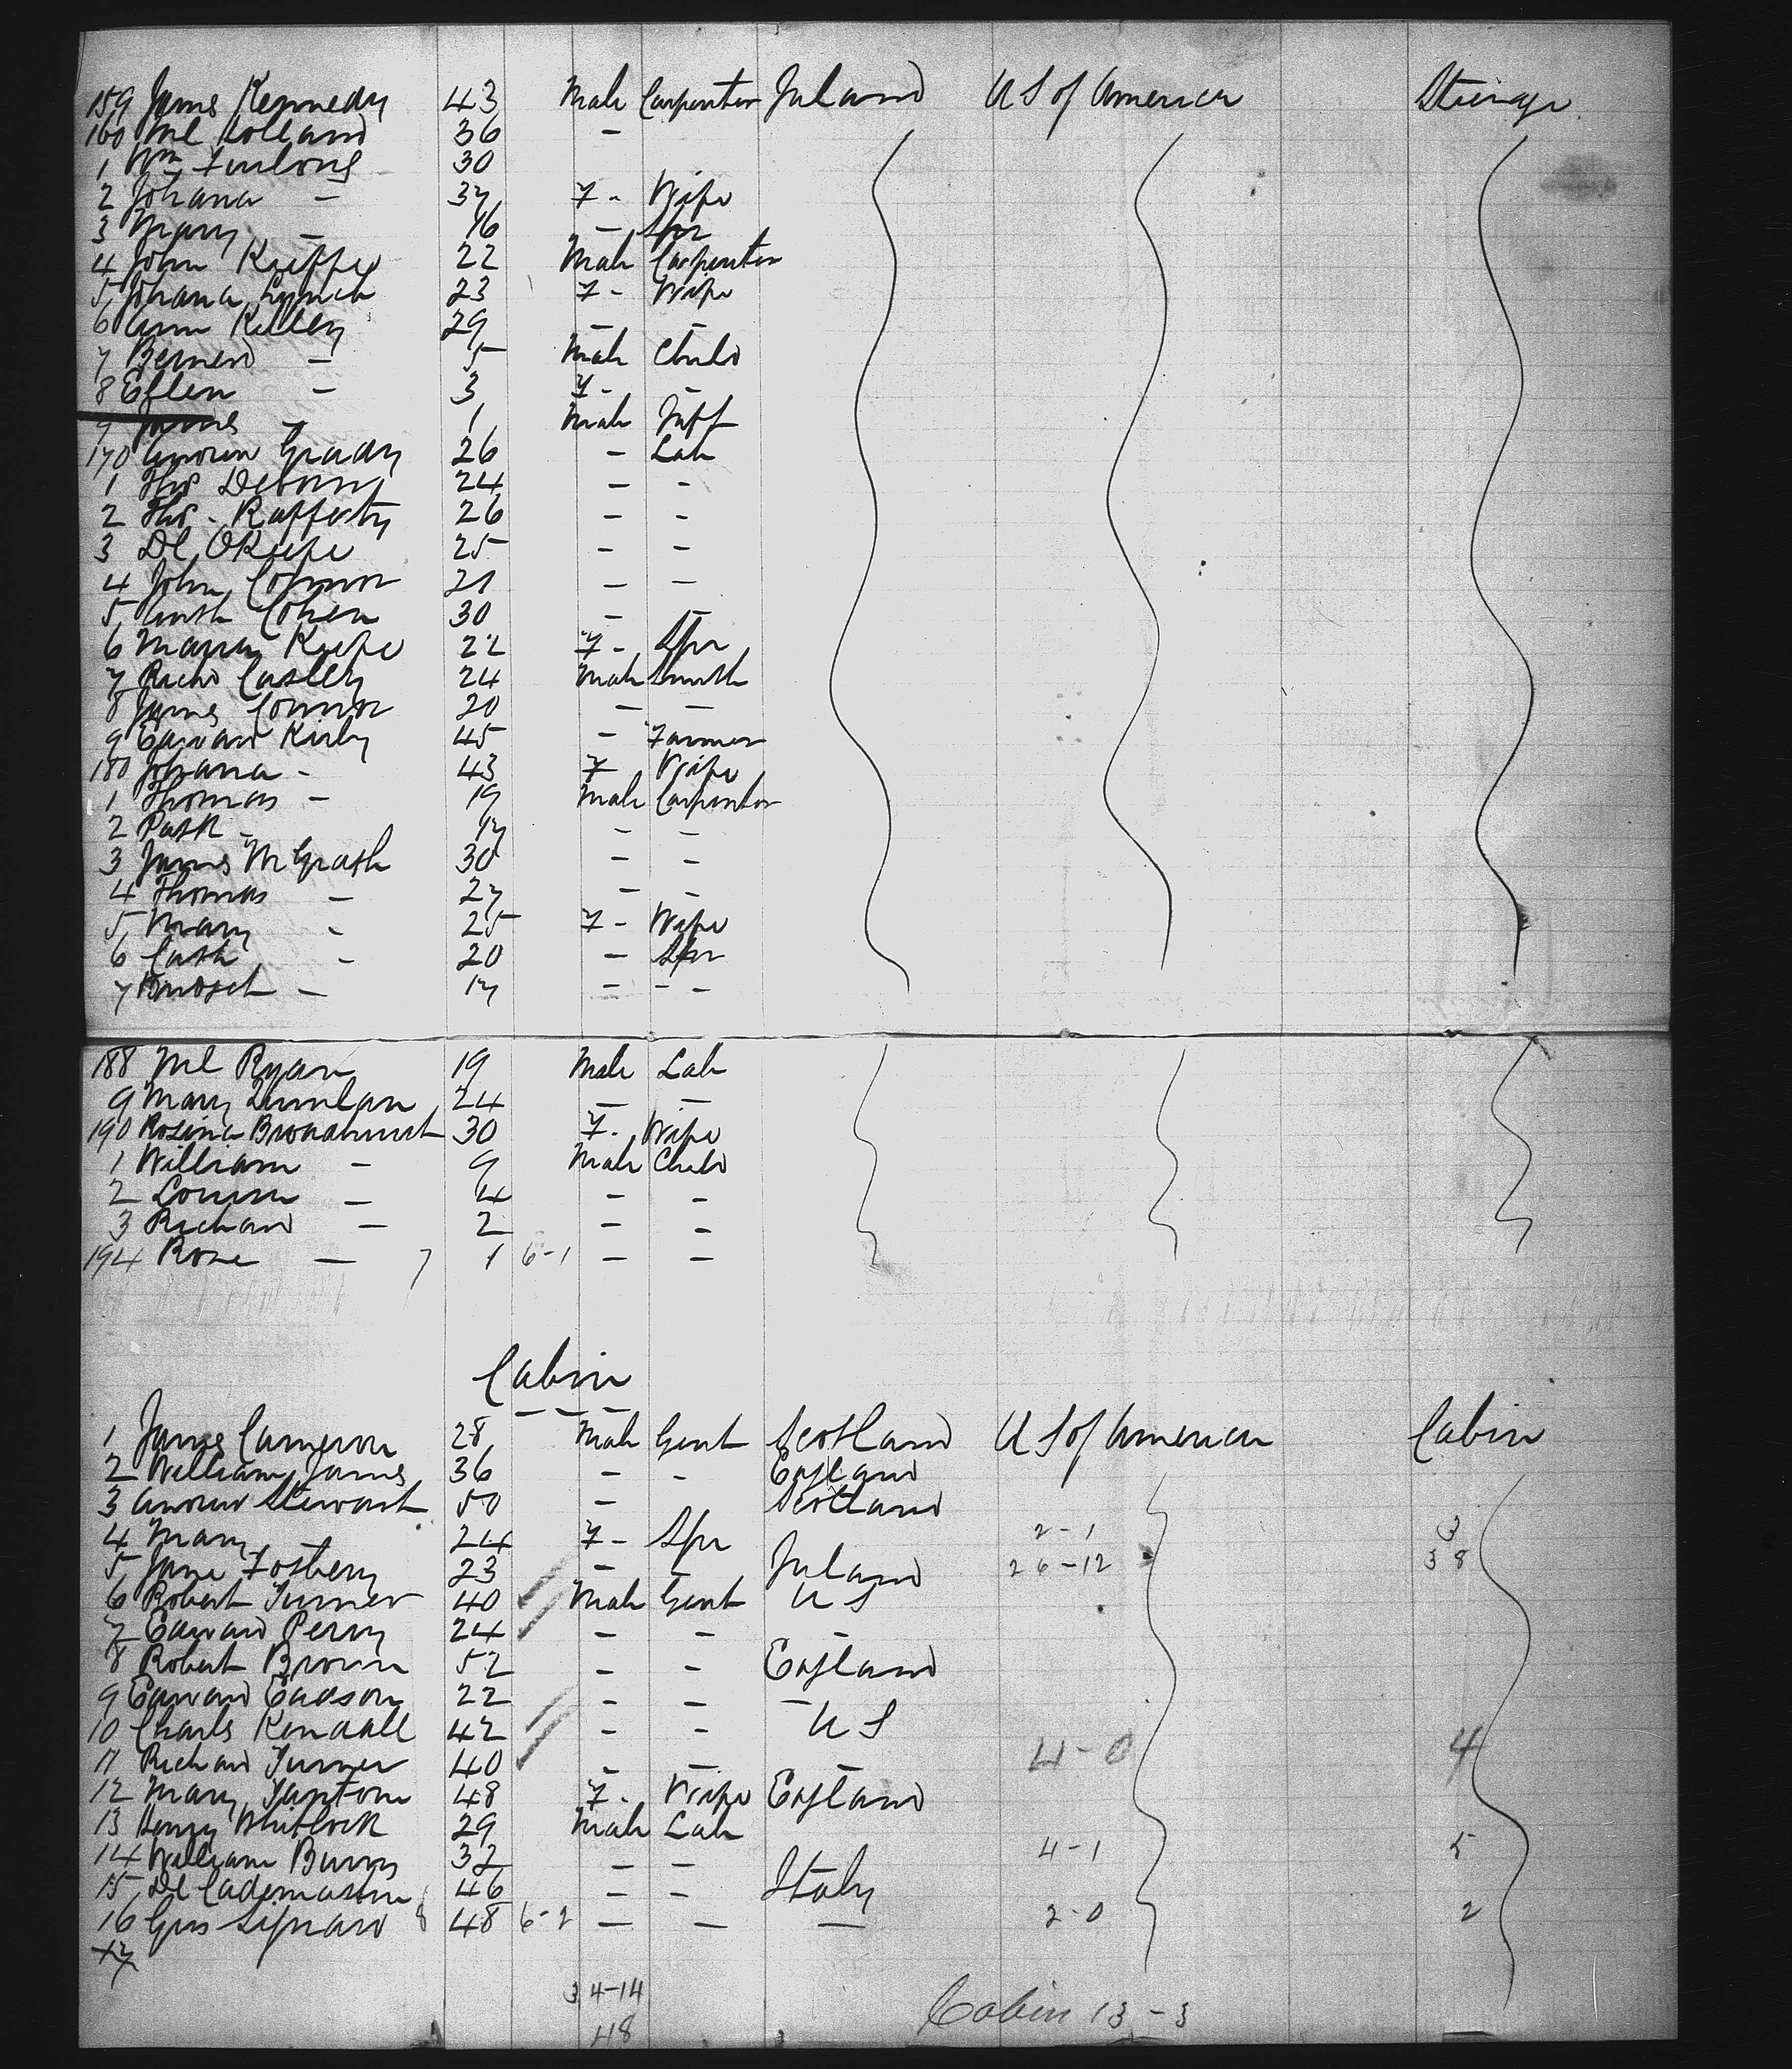 159 James Kennedy 43 Male Carpenter Ireland U S of America Steerage
160 Ml Holland 36 -
1 Wm Furlong 30
2 Johana - 37 F - Wife
3 Mary - 16 - Spr
4 John Keeffe 22 Male Carpenter
5 Johana Lynch 23 F - Wife
6 Ann Kelley 29 - -
7 Bernerd - 5 Male Child
8 Ellen - 3 F - -
9 James - 1 Male Inft
170 Andrew Grady 26 - Lab
1 Thos 24 - -
2 Thos - Rafferty 26 - -
3 Dl OKeefe 25 - -
4 John Connor 21 - -
5 Cohen 30 - -
6 Mary Keefe 22 F - Spr
7 Richd Castley 24 Male Smith
8 James Connor 20 - -
9 Edward Kirby 45 - Farmer
180 Johana - 43 F Wife
1 Thomas - 19 Male Carpenter
2 Patk - 17 - -
3 James McGrath 30 - -
4 Thomas - 27 - -
5 Mary - 25 F - Wife
6 Cath - 20 - Spr
7 Bridget - 17 - - -
188 Ml Ryan 19 Male Lab
9 Mary Quinlan 24 - -
190 Rosina Broadhurst 30 F. Wife
1 William - 9 Male Child
2 Louisa - 4 - -
3 Richard - 2 - -
194 Rose - 7 1 6-1 - -
Cabin
- - -
1 James Cameron 28 Male Gent Scotland U S of America Cabin
2 William James 36 - - England
3 Andrew Stewart 50 - Scotland
4 Mary - 24 F - Spr 2-1 3
5 Jane Fosbery 23 - - Ireland 26-12 38
6 Robert Turner 40 Male Gent U S
7 Edward Perry 24 - - -
8 Robert Brown 52 - - England
9 Edward Eadson 22 - - -
10 Charles Kendall 42 - - U S
11 Richard Turner 40 - - - 4-0 4
12 Mary Tantom 48 F. Wife England
13 Henry Whitlock 29 Male Lab
14 William Burns 32 - - 4-1 5
15 Dl 46 - - Italy
16 Gus 8 48 6-2 - - - 2-0 2
17
34-14
48
Cabin 13-3